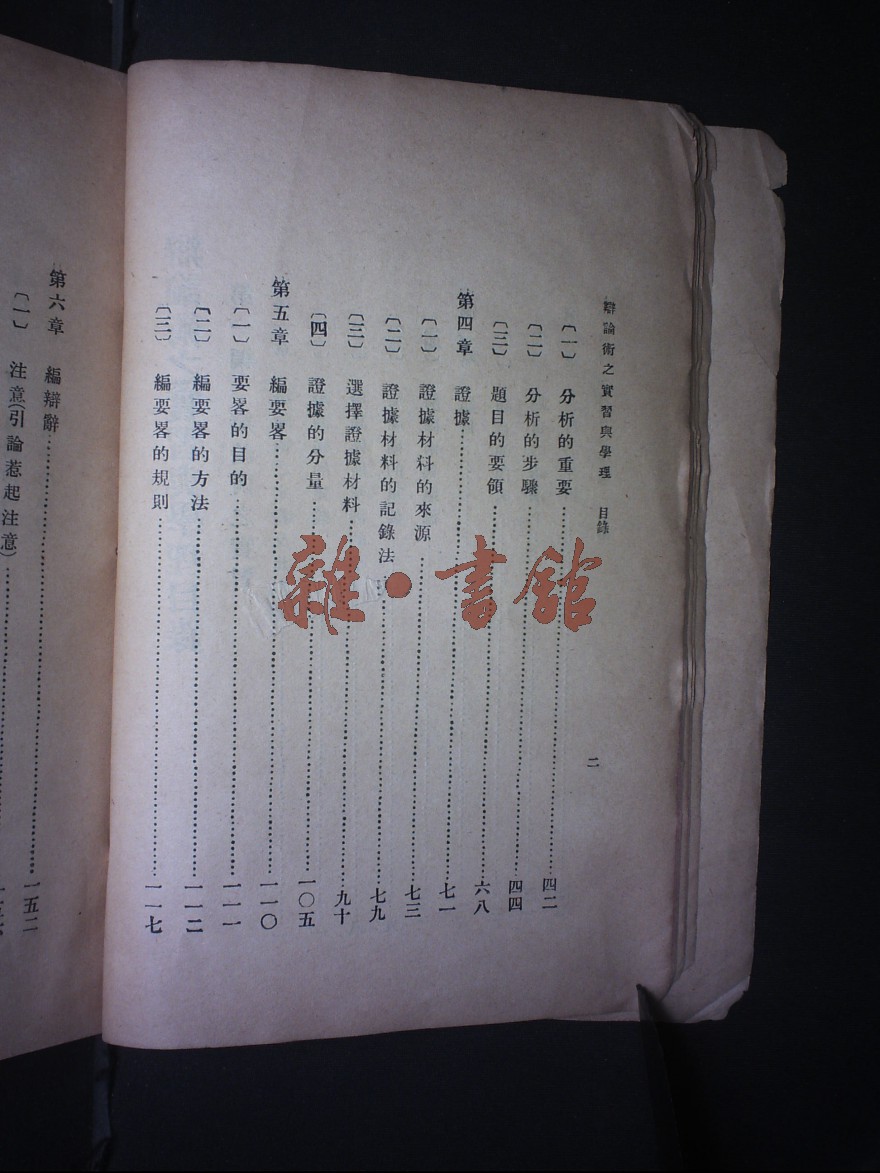 辯論術之實習與學理 目錄 二
〔一〕 分析的重要……四二
〔二〕 分析的步驟……四四
〔三〕 題目的要領……六八
第四章 證據……七一
〔一〕 證據材料的來源……七三
〔二〕 證據材料的記錄法……七九
〔三〕 選擇證據材料……九十
〔四〕 證據的分量……一〇五
第五章 編要畧……一一〇
〔一〕 要畧的目的……一一一
〔二〕 編要畧的方法……一一二
〔三〕 編要畧的規則……一一七
第六章 編辯辭……一五二
〔一〕 注意(引論惹起注意)……
雜·書館